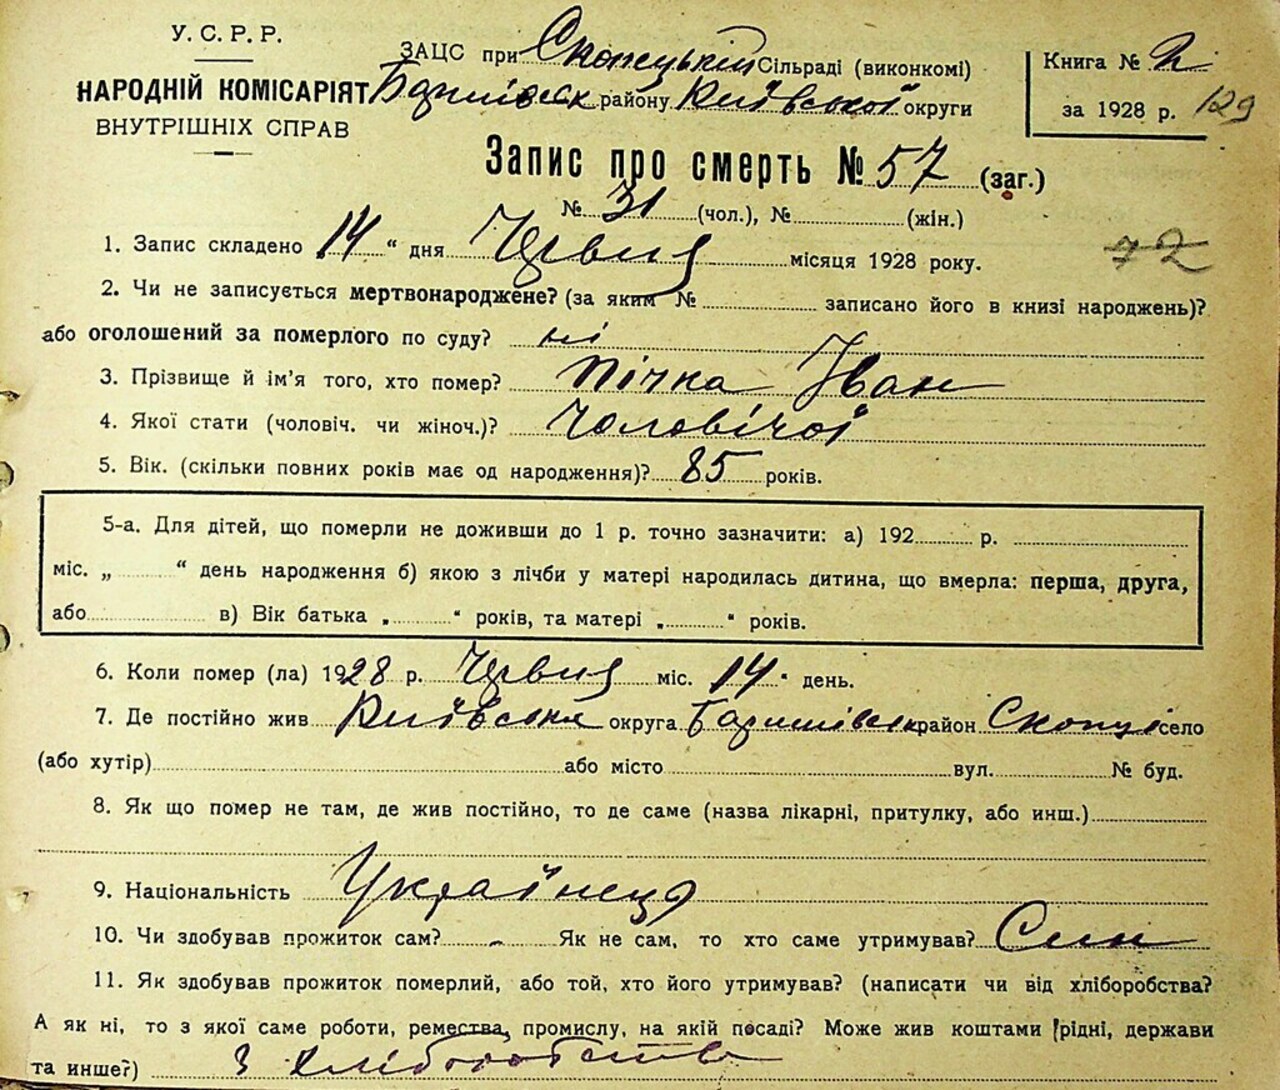 У. С. Р. Р.
НАРОДНІЙ КОМІСАРІЯТ
ВНУТРІШНІХ СПРАВ
ЗАЦС при Скопецькій Сільраді (виконкомі)
Баришівськ району Київської округи
Книга № 2
за 1928 р. 129
Запис про смерть № 57 (заг.)
№ 31 (чол.), № (жін.)
72
1. Запис складено 14 “ дня Червня місяця 1928 року.
2. Чи не записується мертвонароджене? (за яким № записано його в книзі народжень)?
або оголошений за померлого по суду? ні
3. Прізвище й ім’я того, хто помер? Пічка Іван
4. Якої стати (чоловіч. чи жіноч.)? Чоловічої
5. Вік. (скільки повних років має од народження)? 85 років.
5-а. Для дітей, що померли не доживши до 1 р. точно зазначити: а) 192 р.
міс. „ “ день народження б) якою з лічби у матері народилась дитина, що вмерла: перша, друга,
або в) Вік батька „ “ років, та матері „ “ років.
6. Коли помер (ла) 1928 р. Червня міс. 14 “ день.
7. Де постійно жив Київська округа Баришівськ район Скопці село
(або хутір) або місто вул. № буд.
8. Як що помер не там, де жив постійно, то де саме (назва лікарні, притулку, або инш.)
9. Національність Українець
10. Чи здобував прожиток сам? - Як не сам, то хто саме утримував? Син
11. Як здобував прожиток померлий, або той, хто його утримував? (написати чи від хліборобства?
А як ні, то з якої саме роботи, ремества, промислу, на якій посаді? Може жив коштами (рідні, держави
та инше?) З хліборобства